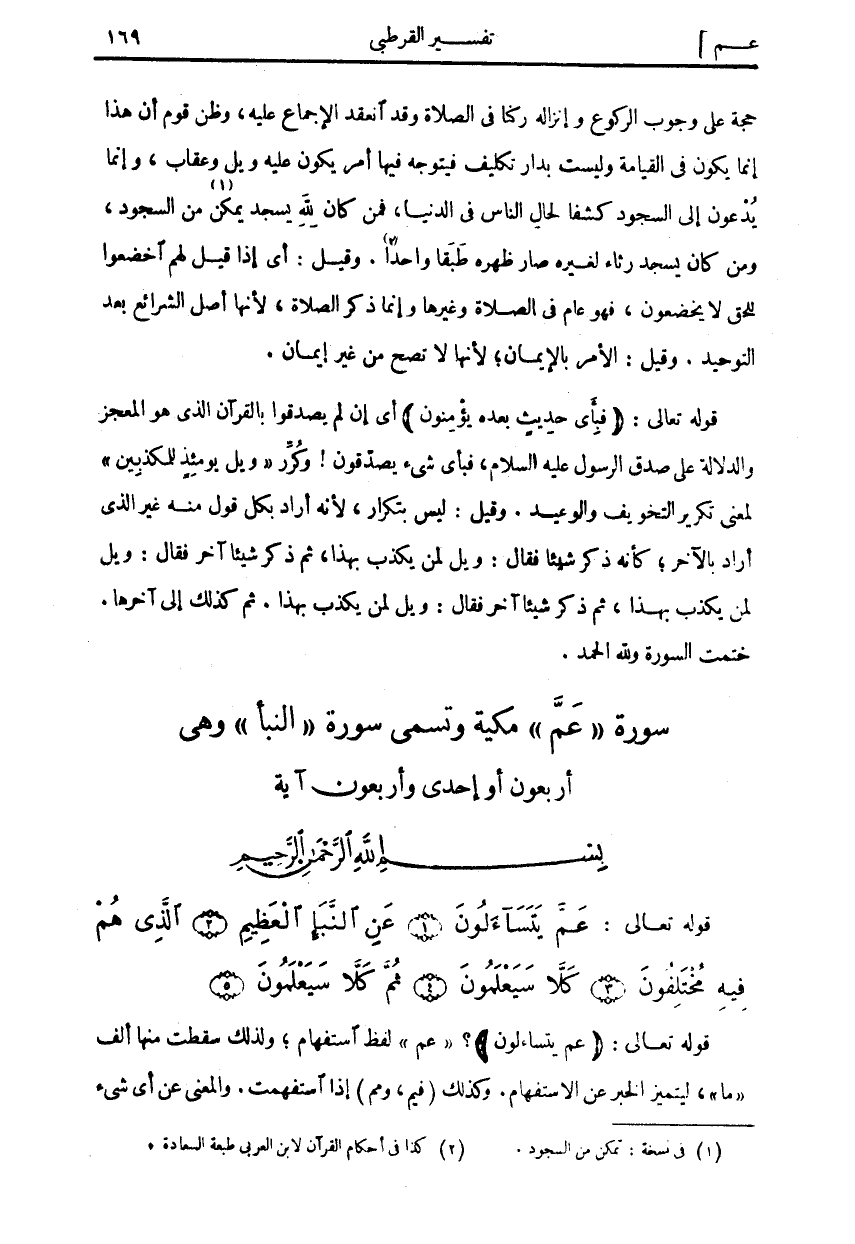 عــم ]
تفســير القرطبى
١٦٩
حجة على وجوب الركوع وإنزاله ركنا فى الصلاة وقد ٱنعقد الإجماع عليه، وظن قوم أن هذا
إنما يكون فى القيامة وليست بدار تكليف فيتوجه فيها أمر يكون عليه ويل وعقاب ، وإنما
يُدْعون إلى السجود كشفا لحال الناس فى الدنيـا، فمن كان لِلّهِ يسجد يمكّن(١) من السجود ،
ومن كان يسجد رئاء لغيره صار ظهره طَبَقا واحدًا(٢) . وقيـل : أى إذا قيـل لهم ٱخضعوا
للحق لا يخضعون ، فهو عام فى الصـلاة وغيرها وإنما ذكر الصلاة ، لأنها أصل الشرائع بعد
التوحيد . وقيل : الأمر بالإيمـان؛ لأنها لا تصح من غير إيمـان .
قوله تعالى : ﴿ فبِأَى حديثٍ بعده يؤمنون ﴾ أى إن لم يصدقوا بالقرآن الذى هو المعجز
والدلالة على صدق الرسول عليه السلام، فبأى شىء يصدّقون ! وكُرِّر « ويل يومئِذٍ للمكذبين »
لمعنى تكرير التخويف والوعيـد . وقيل : ليس بتكرار ، لأنه أراد بكل قول منـه غير الذى
أراد بالآخر ؛ كأنه ذكر شيئا فقال : ويل لمن يكذب بهذا، ثم ذكر شيئا آخر فقال : ويل
لمن يكذب بهـذا ، ثم ذكر شيئا آخر فقال : ويل لمن يكذب بهذا . ثم كذلك إلى آخرها .
ختمت السورة ولله الحمد .
سورة « عَمَّ » مكية وتسمى سورة « النبأ » وهى
أربعون أو إحدى وأربعون آية
بِسْـــــمِ ٱللَّهِ ٱلرَّحْمَٰنِ ٱلرَّحِيمِ
قوله تعـالى : عَمَّ يَتَسَآءَلُونَ ۝١ عَنِ ٱلنَّبَإِ ٱلْعَظِيمِ ۝٢ ٱلَّذِى هُمْ
فِيهِ مُخْتَلِفُونَ ۝٣ كَلَّا سَيَعْلَمُونَ ۝٤ ثُمَّ كَلَّا سَيَعْلَمُونَ ۝٥
قوله تعـالى : ﴿ عم يتساءلون ﴾ ؟ « عم » لفظ ٱستفهام ؛ ولذلك سقطت منها ألف
«ما»، ليتميز الخبر عن الاستفهام. وكذلك (فيم، ومم) إذا ٱستفهمت. والمعنى عن أى شىء
(١) فى نسخة : تمكن من السجود . (٢) كذا فى أحكام القرآن لابن العربى طبعة السعادة .